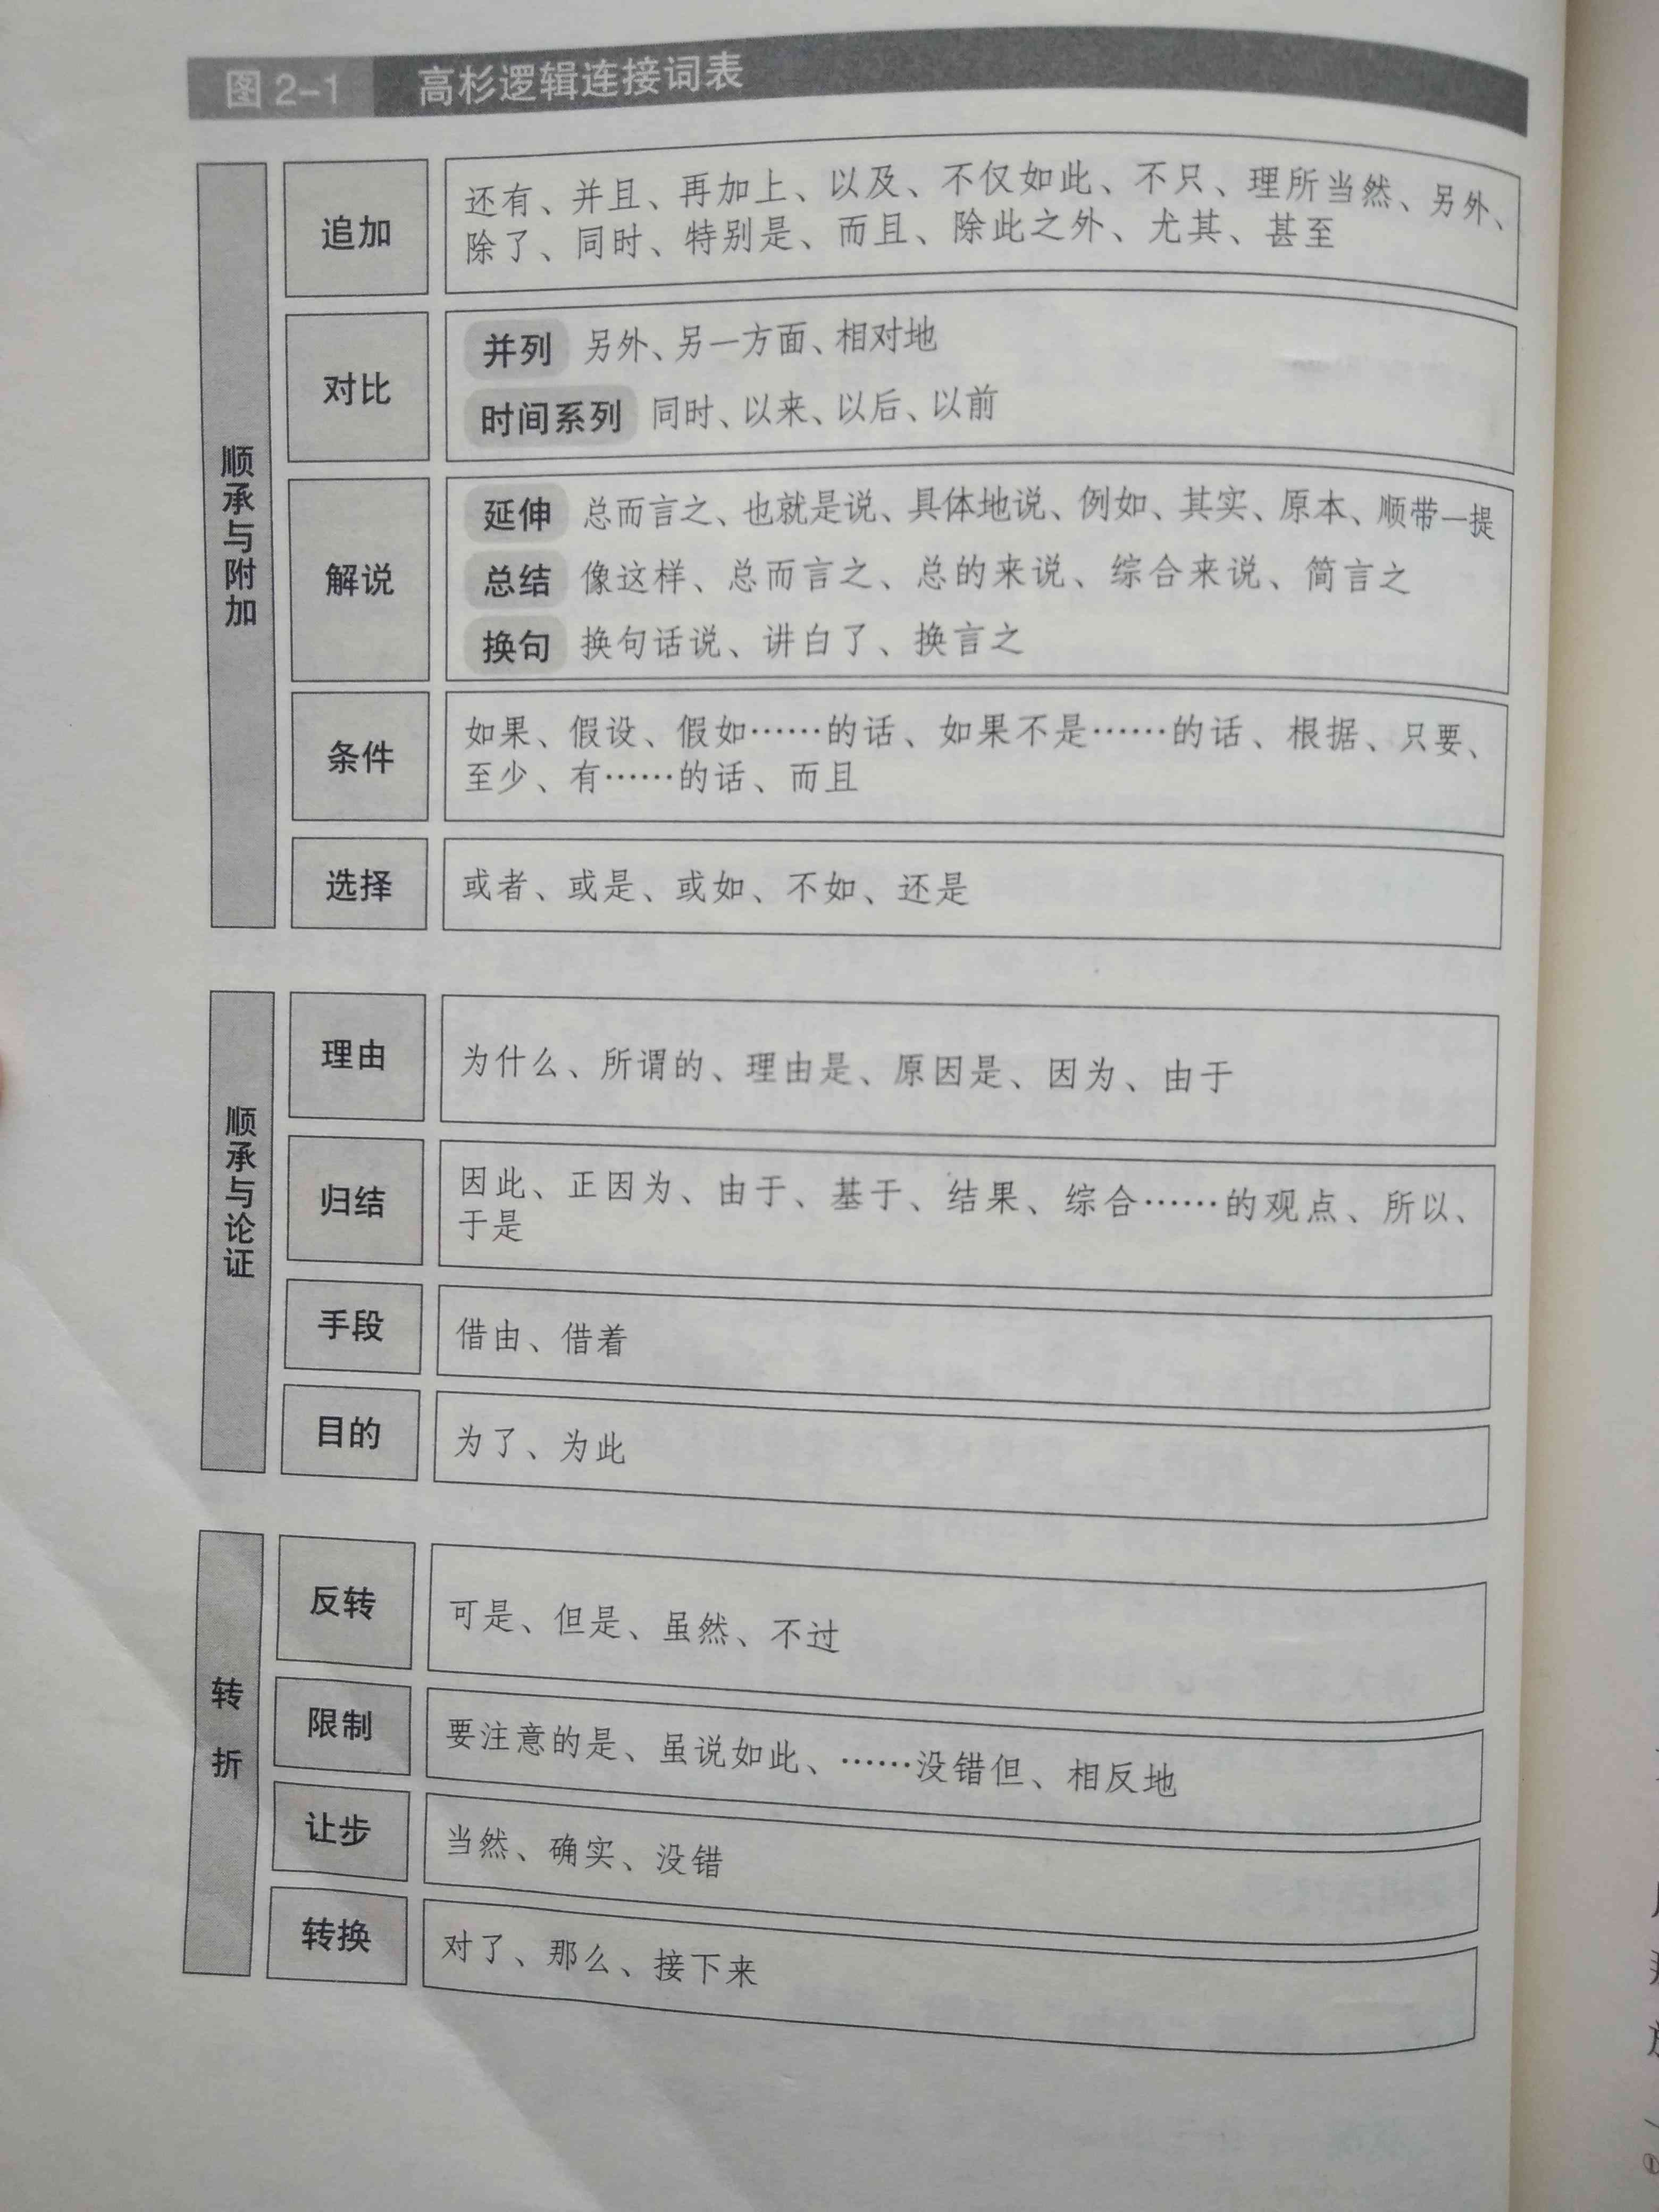 图 2-1 高杉逻辑连接词表
顺承与附加
追加
还有、并且、再加上、以及、不仅如此、不只、理所当然、另外、
除了、同时、特别是、而且、除此之外、尤其、甚至
对比
并列 另外、另一方面、相对地
时间系列 同时、以来、以后、以前
解说
延伸 总而言之、也就是说、具体地说、例如、其实、原本、顺带一提
总结 像这样、总而言之、总的来说、综合来说、简言之
换句 换句话说、讲白了、换言之
条件
如果、假设、假如……的话、如果不是……的话、根据、只要、
至少、有……的话、而且
选择
或者、或是、或如、不如、还是
顺承与论证
理由
为什么、所谓的、理由是、原因是、因为、由于
归结
因此、正因为、由于、基于、结果、综合……的观点、所以、
于是
手段
借由、借着
目的
为了、为此
转折
反转
可是、但是、虽然、不过
限制
要注意的是、虽说如此、……没错但、相反地
让步
当然、确实、没错
转换
对了、那么、接下来